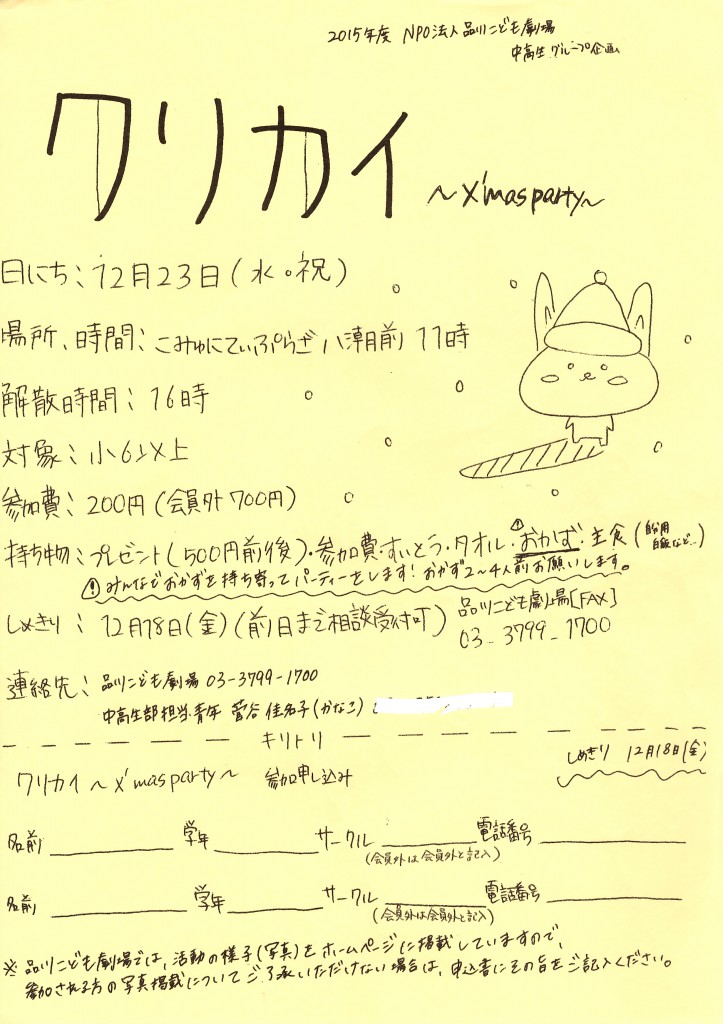 2015年度 NPO法人品川こども劇場
中高生グループ企画
クリカイ ～X'mas party～
日にち：12月23日(水・祝)
場所、時間：こみゅにてぃぷらざ八潮前 11時
解散時間：16時
対象：小6以上
参加費：200円(会員外700円)
持ち物：プレゼント(500円前後)・参加費・すいとう・タオル・おかず・主食(自分用 白飯など…)
みんなでおかずを持ち寄ってパーティーをします！おかず2～4人前お願いします。
しめきり：12月18日(金)(前日まで相談受付可)
品川こども劇場[FAX]
03-3799-1700
連絡先：品川こども劇場 03-3799-1700
中高生部担当・青年 菅谷 佳名子(かなこ)
キリトリ
しめきり 12月18日(金)
クリカイ ～X'mas party～ 参加申し込み
名前 学年 サークル 電話番号
(会員外は会員外と記入)
名前 学年 サークル 電話番号
(会員外は会員外と記入)
※品川こども劇場では、活動の様子(写真)をホームページに掲載していますので、
参加される方の写真掲載についてご了承いただけない場合は、申込書にその旨をご記入ください。